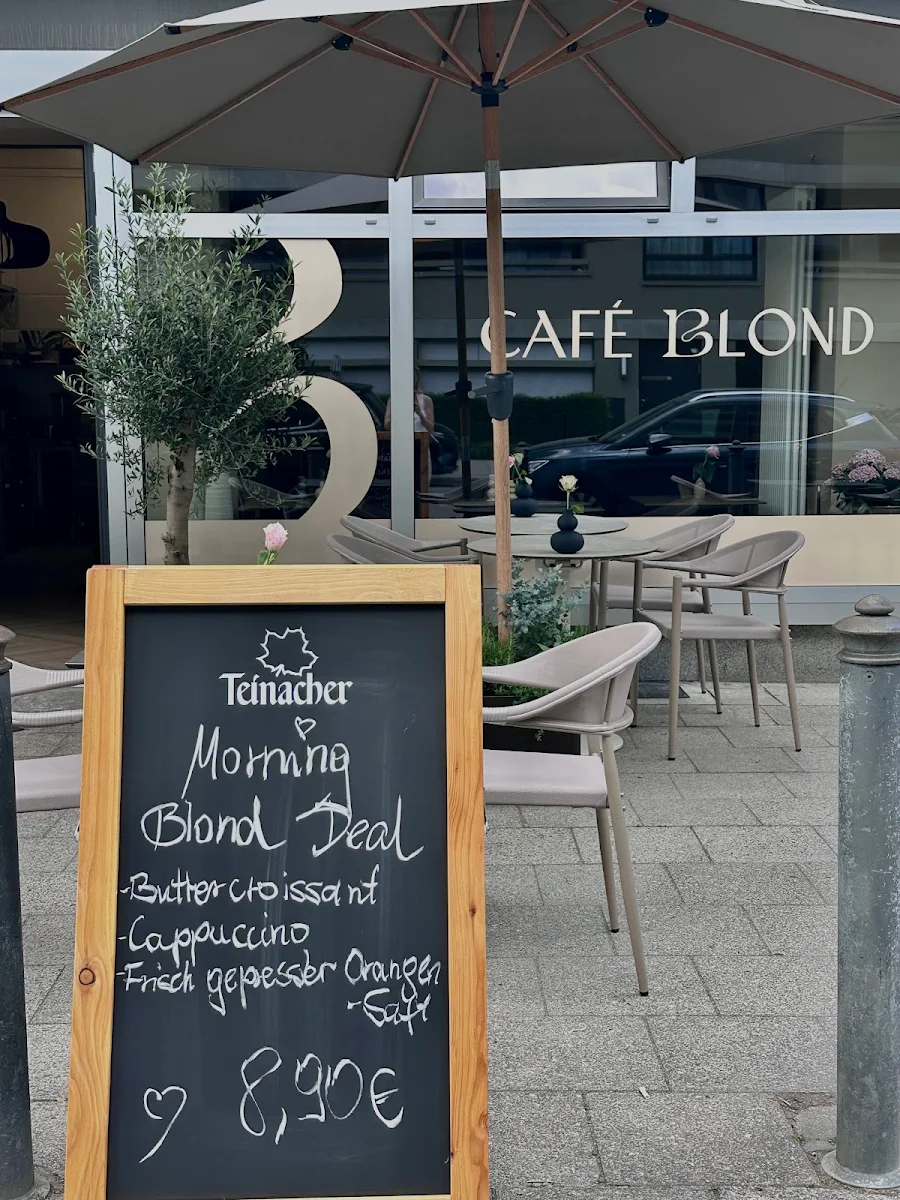 CAFÉ BLOND
B
Teinacher
Morning
Blond Deal
-Buttercroissant
-Cappuccino
-Frisch gepresster Orangen
-Saft
8,90€